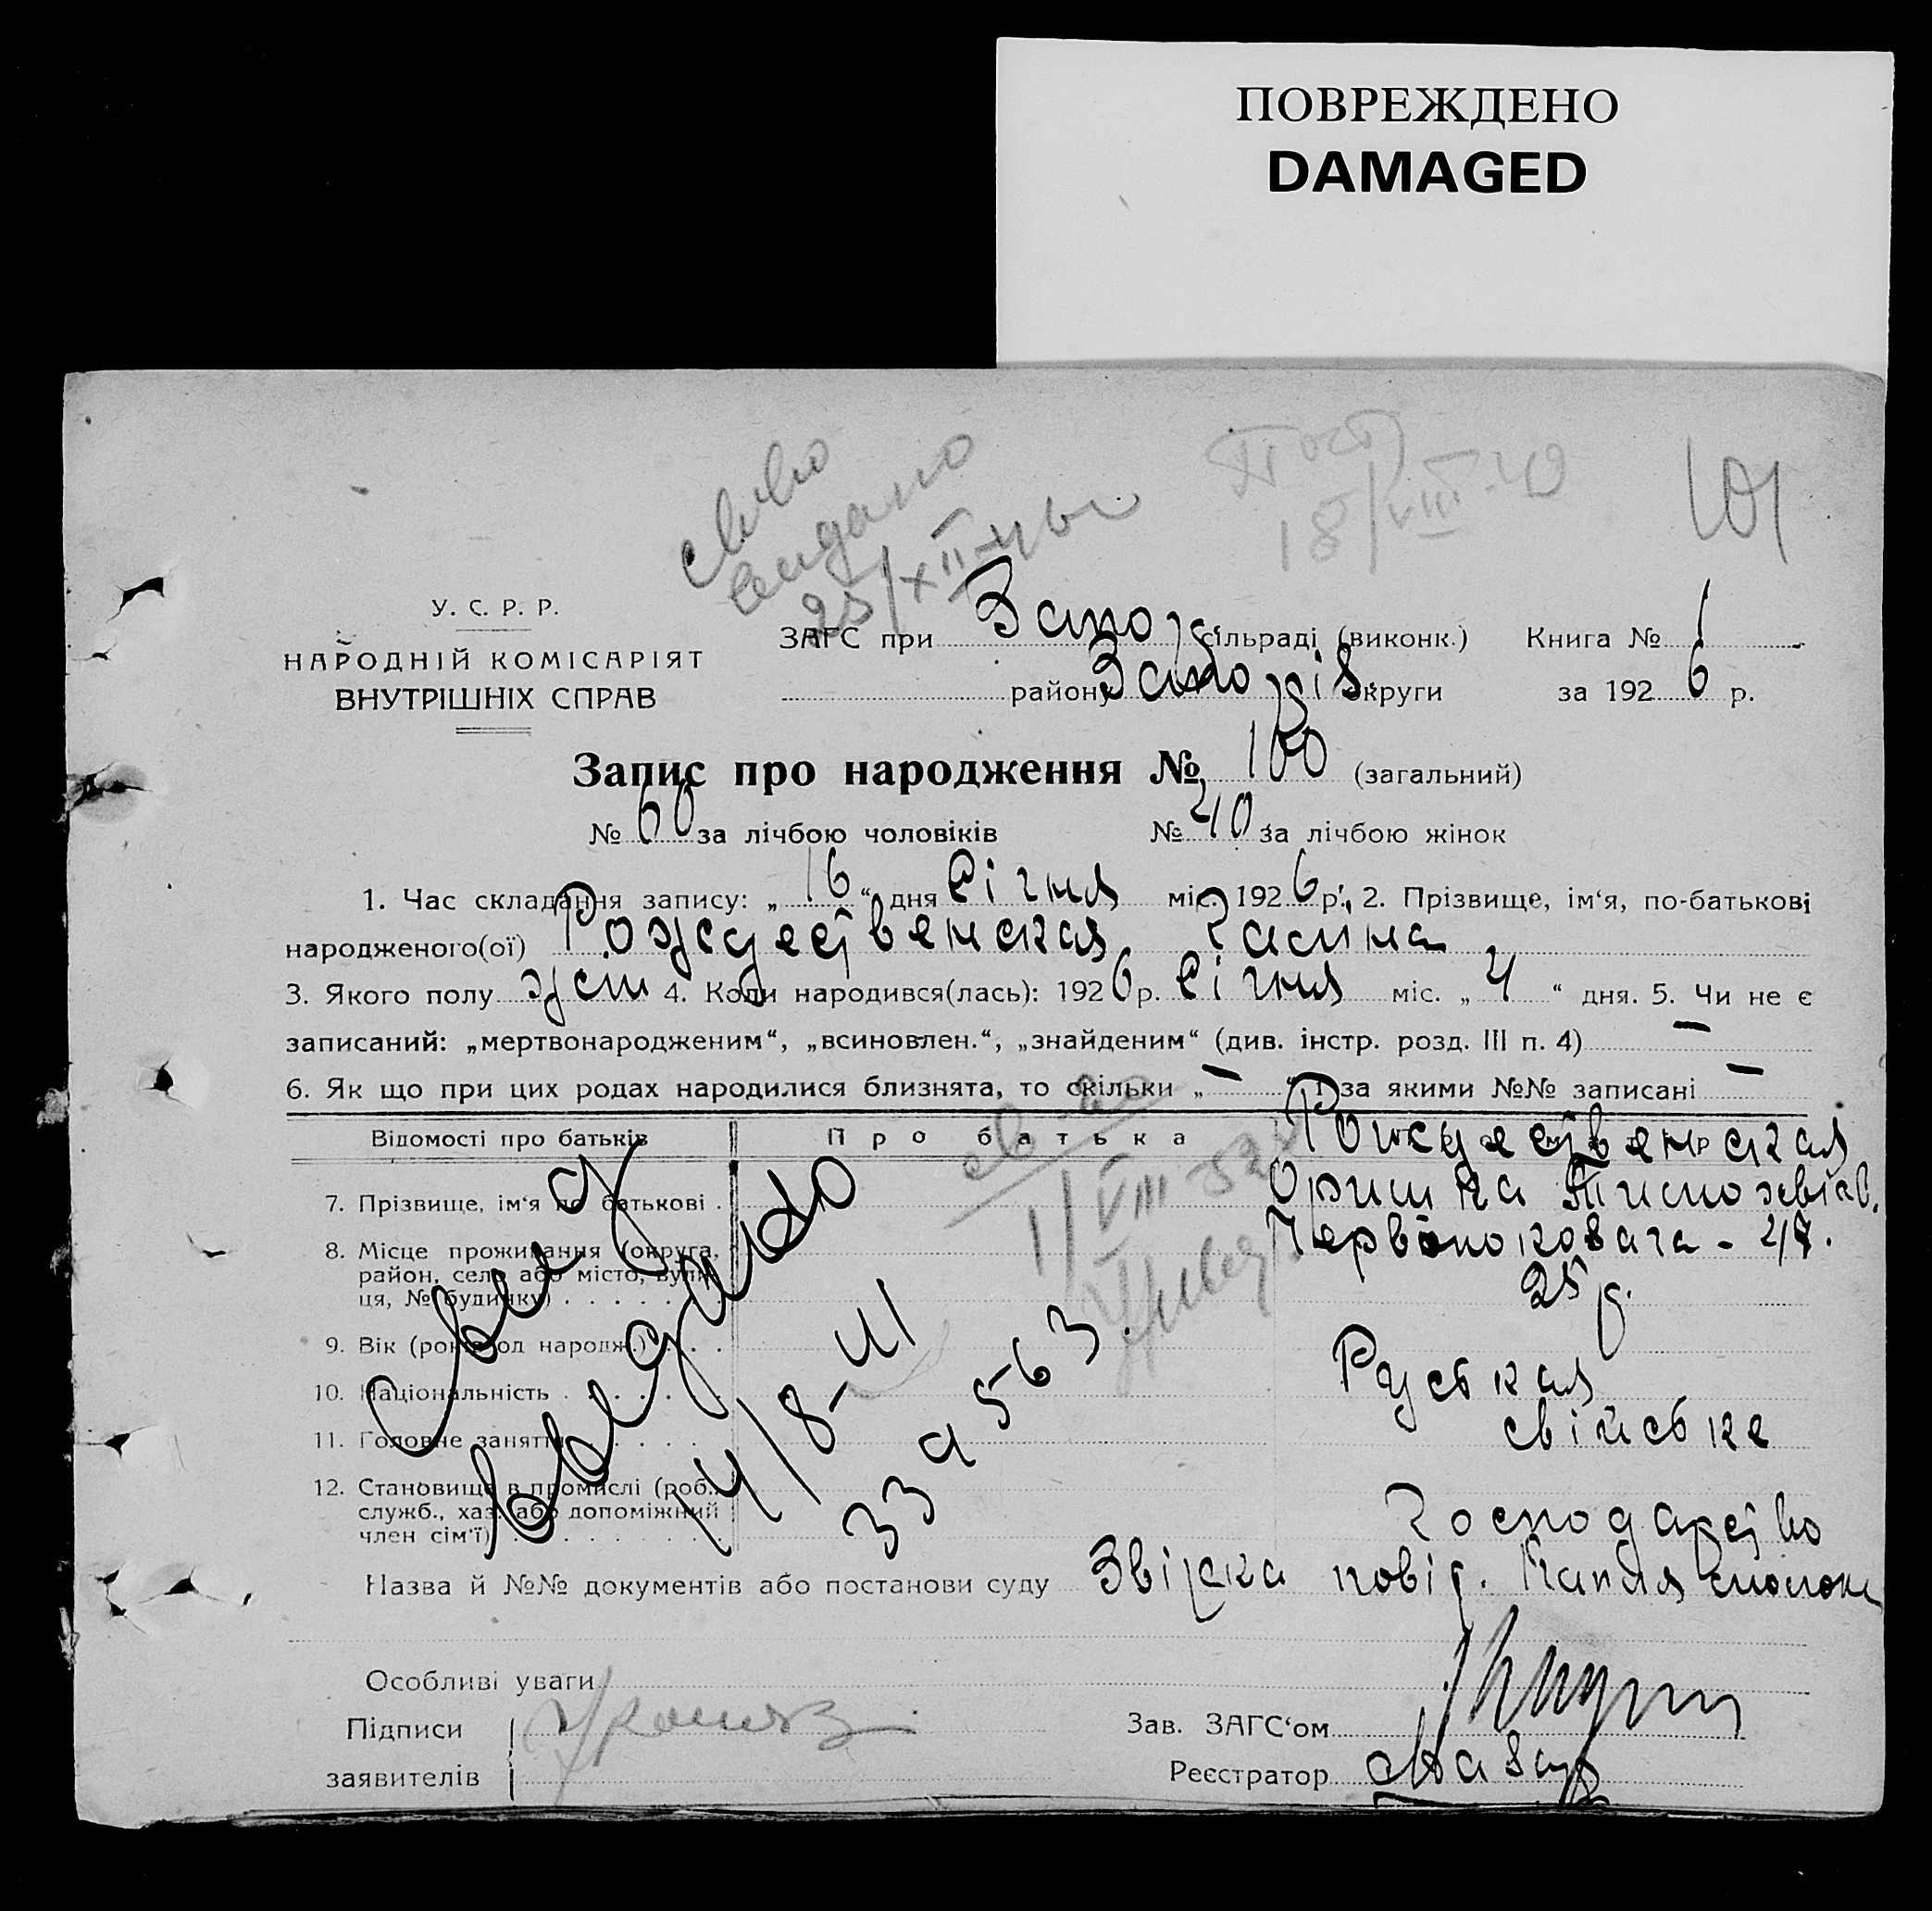 ПОВРЕЖДЕНО
DAMAGED
видано
25/XII-
18/VIII-40
101
У. С. Р. Р.
НАРОДНІЙ КОМІСАРІЯТ
ВНУТРІШНІХ СПРАВ
ЗАГС при Запоріз сільраді (виконк.) Книга № 1
району Запоріз округи за 1926 р.
Запис про народження № 100 (загальний)
№ 60 за лічбою чоловіків № 40 за лічбою жінок
1. Час складання запису: „16“ дня Січня міс. 1926 р. 2. Прізвище, ім‘я, по-батькові
народженого(ої) Рождественская Галина
3. Якого полу жін 4. Коли народився(лась): 1926 р. Січня міс. „4“ дня. 5. Чи не є
записаний: „мертвонародженим“, „всиновлен.“, „знайденим“ (див. інстр. розд. III п. 4) —
6. Як що при цих родах народилися близнята, то скільки „—“ І за якими №№ записані —
Відомості про батьків Про батька
Рождественская
7. Прізвище, ім‘я по батькові .
Оришка Тимофвіївн.
8. Місце проживання (округа,
район, село або місто, вули-
ця, № будинку) . . . . . .
- 47.
9. Вік (років од народж.) . . .
25 р.
10. Національність . . . . . .
Руськая
11. Головне заняття . . . . .
свійське
12. Становище в промислі (роб.,
служб., хаз. або допоміжний
член сім‘ї) . . . . . . . .
Господарство
Свид
выдано
14/8-41
339563.
1/VIII-52
Назва й №№ документів або постанови суду Звірка повід.
Особливі уваги
Підписи
заявителів
Зав. ЗАГС‘ом
Реєстратор